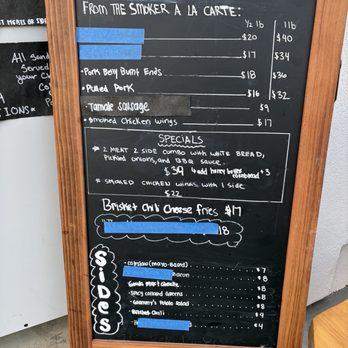 FROM THE SMOKER A LA CARTE:
½ lb 1lb
$20 $40
$17 $34
• Pork Belly Burnt Ends $18 $36
• Pulled Pork $16 $32
Tamale Sausage $9
• Smoked Chicken Wings $17
SPECIALS
* 2 MEAT 2 SIDE COMBO WITH WHITE BREAD,
Pickled onions, and BBQ sauce.
$39 add honey butter cornbread + 3
* SMOKED CHICKEN WINGS WITH 1 SIDE
$22
Brisket Chili Cheese Fries $17
18
SIDES
• Coleslaw (mayo-based) $7
bacon $8
Gouda Mac & Cheese $8
• Spicy Collard Greens $8
• Granny's Potato Salad $8
• Brisket Chili $9
$4
All
Served
your Ch